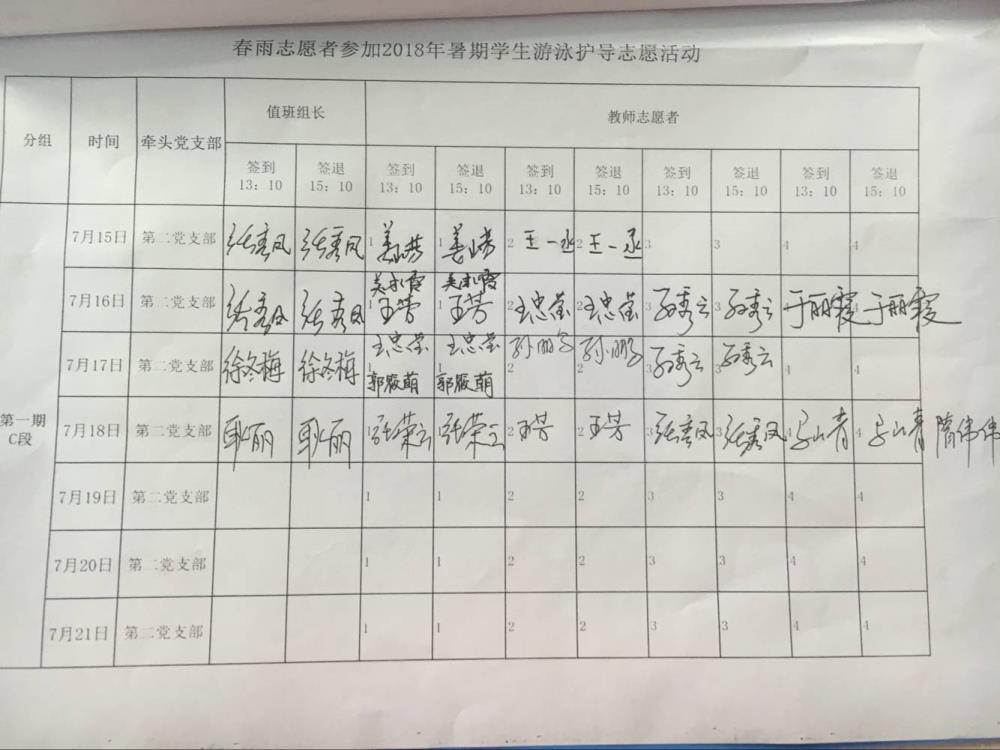 春雨志愿者参加2018年暑期学生游泳护导志愿活动
分组 时间 牵头党支部 值班组长 教师志愿者
签到 签退 签到 签退 签到 签退 签到 签退 签到 签退
13：10 15：10 13：10 15：10 13：10 15：10 13：10 15：10 13：10 15：10
7月15日 第二党支部 张秀凤 张秀凤 1 1 2 王一丞 2 王一丞 3 3 4 4
吴永霞 吴永霞
7月16日 第二党支部 张秀凤 张秀凤 1 王芳 1 王芳 2 王忠莹 2 王忠莹 3 孙秀云 3 孙秀云 4 于丽霞 4 于丽霞
王忠莹 王忠莹
7月17日 第二党支部 徐冬梅 徐冬梅 1 郭服萌 1 郭服萌 2 孙鹏 2 孙鹏 3 孙秀云 3 孙秀云 4 4
第一期
C段
7月18日 第二党支部 耿丽 耿丽 1 张荣云 1 张荣云 2 王芳 2 王芳 3 张秀凤 3 张秀凤 4 4 隋伟伟
7月19日 第二党支部 1 1 2 2 3 3 4 4
7月20日 第二党支部 1 1 2 2 3 3 4 4
7月21日 第二党支部 1 1 2 2 3 3 4 4